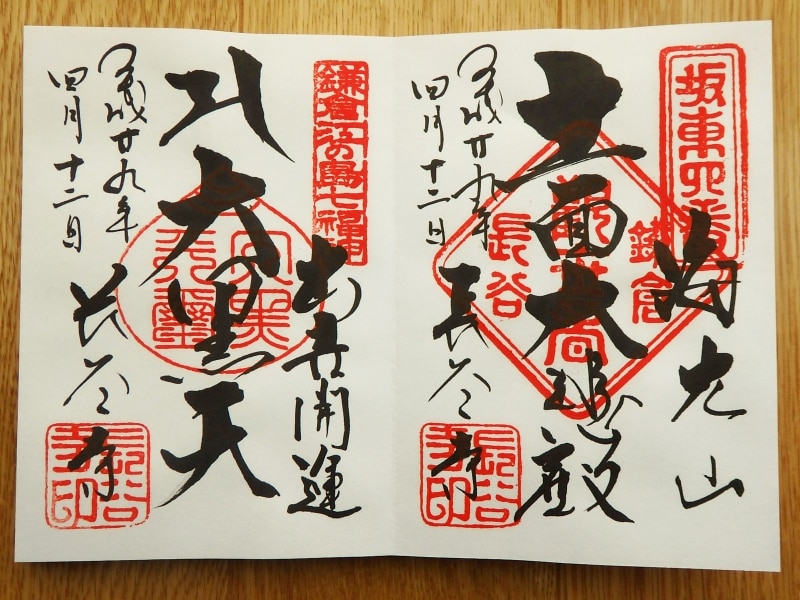 坂東四番
海光山
鎌倉
長谷
十一面大悲殿
平成廿九年
四月十二日
長谷寺
長谷寺印
鎌倉江の島七福神
出世開運
大黒天
平成廿九年
四月十二日
長谷寺
長谷寺印